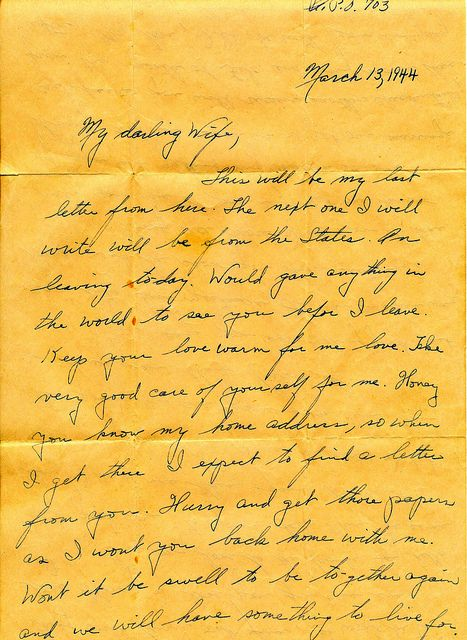 A.P.O. 703
March 13, 1944
My darling Wife,
This will be my last
letter from here. The next one I will
write will be from the States. Am
leaving to-day. Would gave anything in
the world to see you befor I leave.
Keep your love warm for me love. Take
very good care of yourself for me. Honey
you know my home address, so when
I get there I expect to find a letter
from you. Hurry and get those papers
as I wont you back home with me.
Wont it be swell to be to-gether again
and we will have something to live for